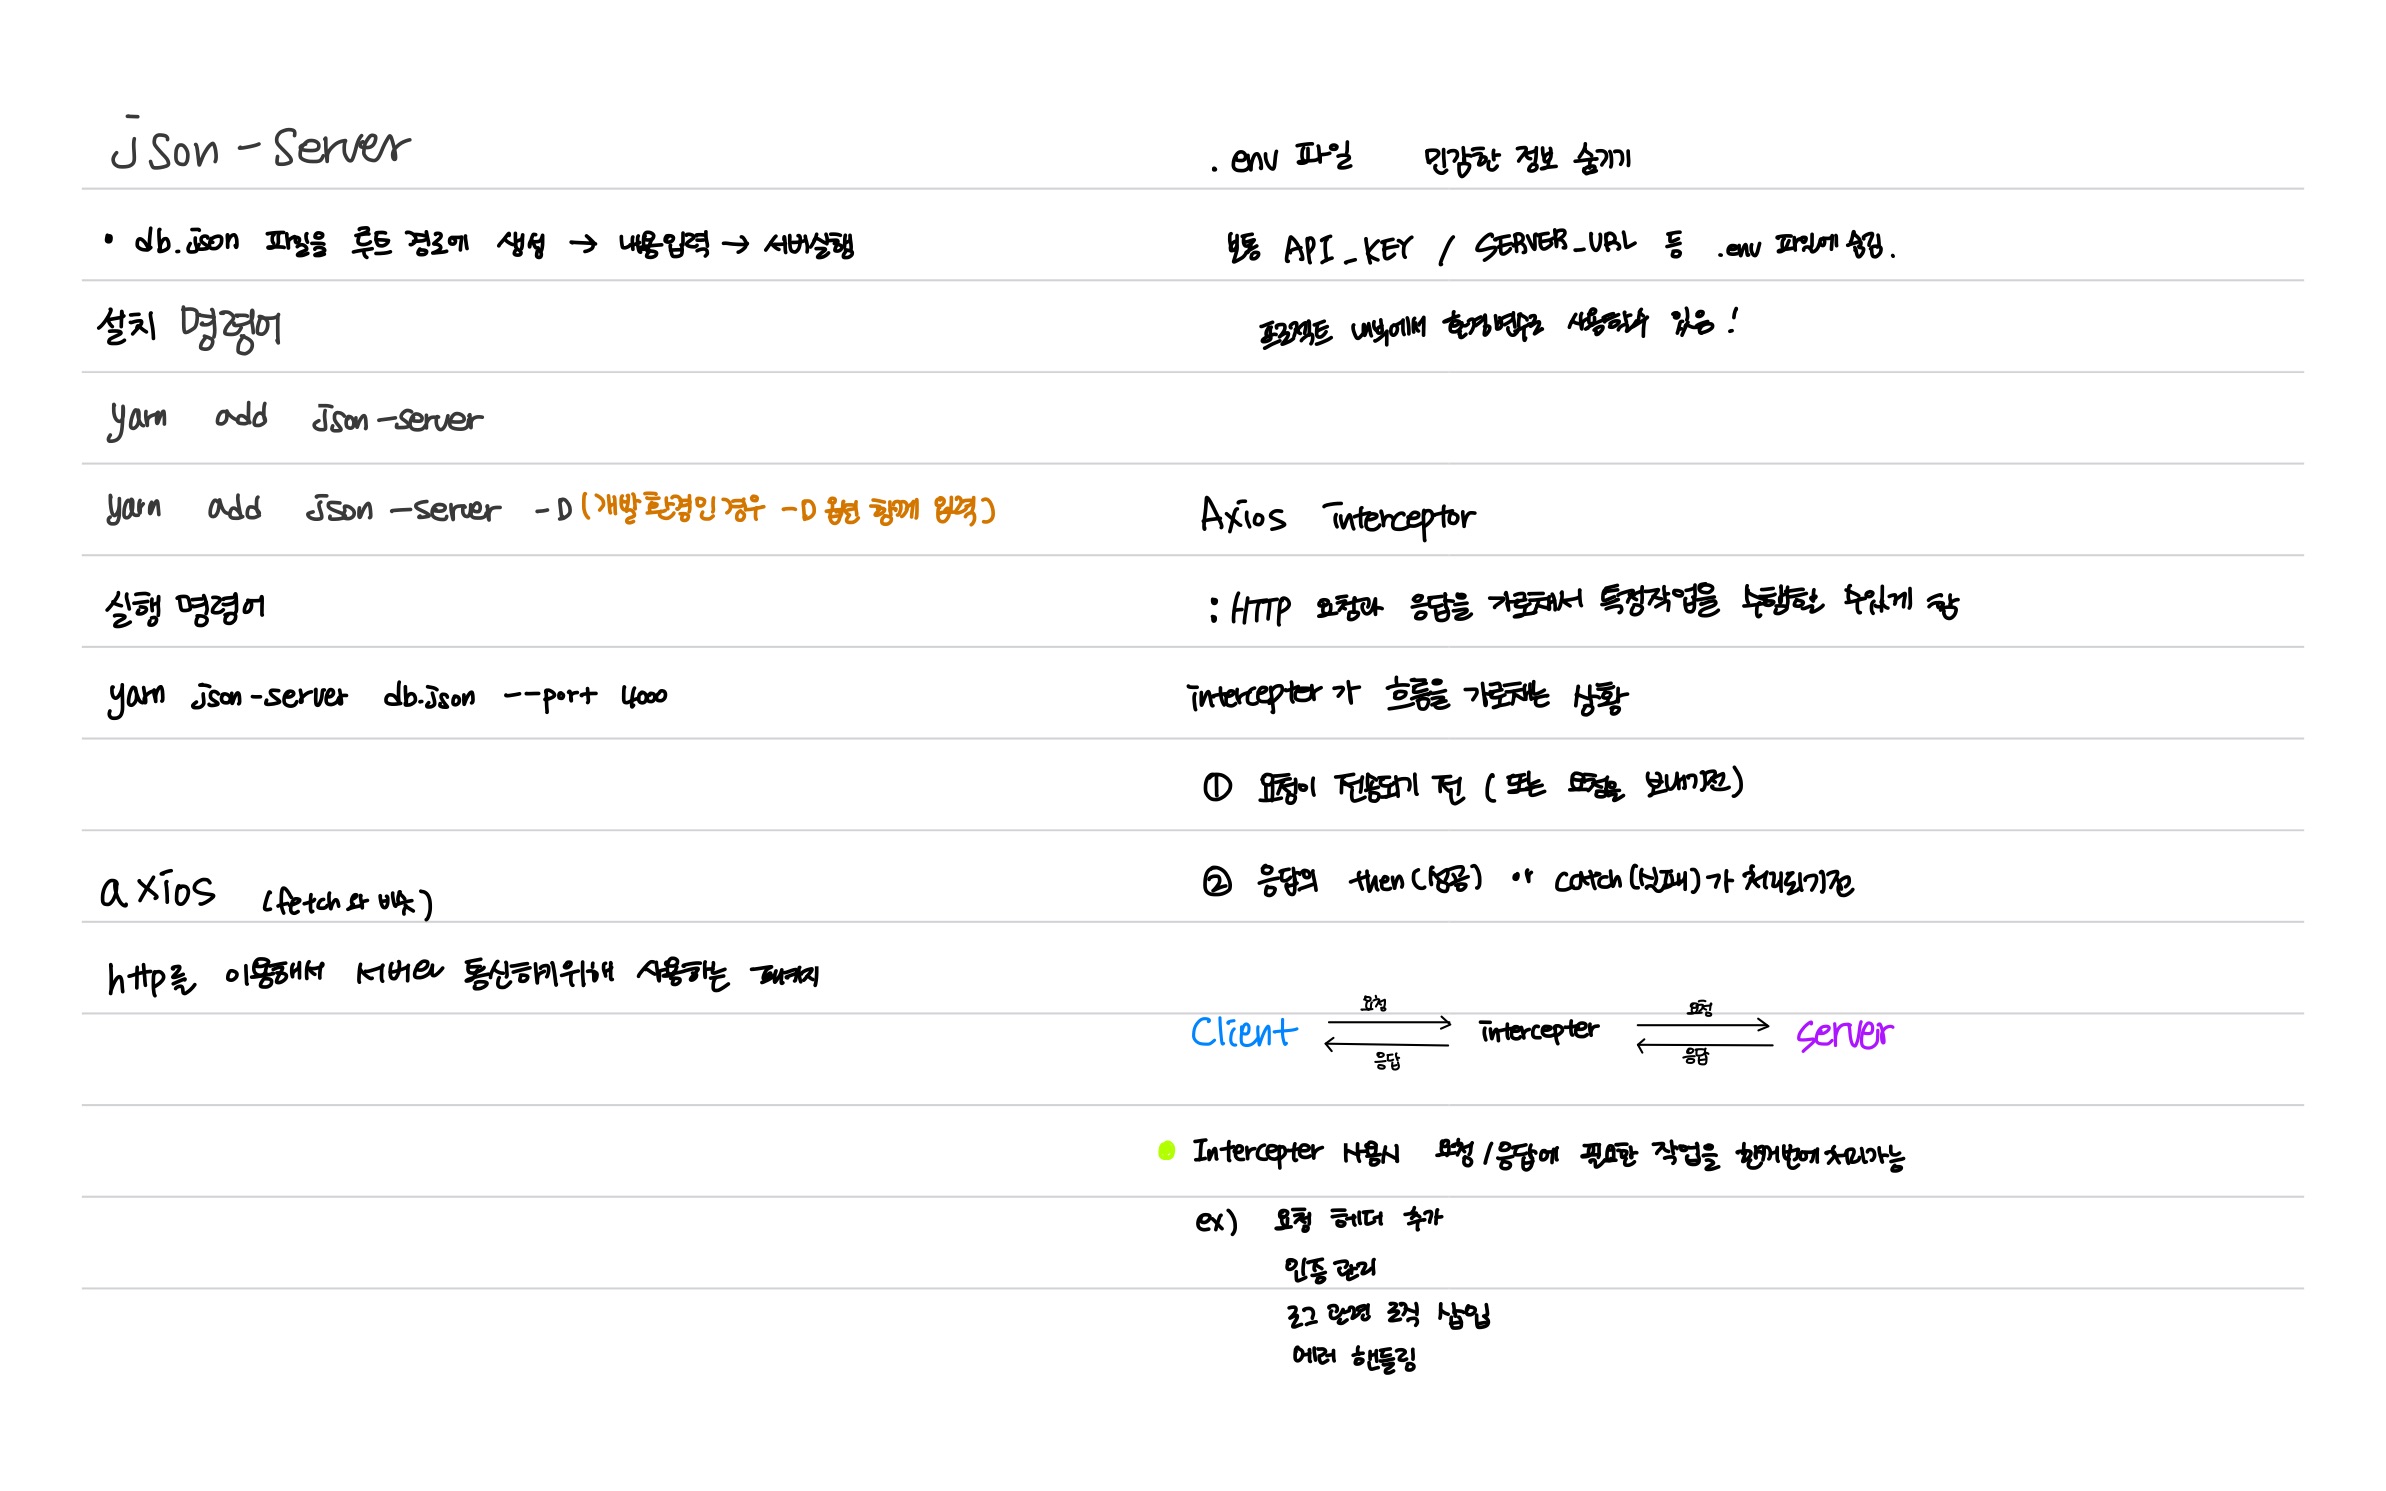 json-server
• db.json 파일을 루트 경로에 생성 → 내용입력 → 서버실행
설치 명령어
yarn add json-server
yarn add json-server -D (개발환경인 경우 -D 옵션 함께 입력)
실행 명령어
yarn json-server db.json --port 4000
axios (fetch와 비슷)
http를 이용해서 서버와 통신하기위해 사용하는 패키지
.env 파일 민감한 정보 숨기기
보통 API_KEY / SERVER_URL 등 .env 파일에 숨김.
프로젝트 내부에서 환경변수로 사용할수 있음!
Axios interceptor
: HTTP 요청과 응답을 가로채서 특정작업을 수행할 수있게 함
intercepter가 흐름을 가로채는 상황
① 요청이 전송되기 전 (또는 요청을 보내기전)
② 응답의 then(성공) or catch(실패)가 처리되기전
요청 요청
Client intercepter server
응답 응답
Intercepter 사용시 요청/응답에 필요한 작업을 한꺼번에 처리가능
ex) 요청 헤더 추가
인증 관리
로그 관련 로직 삽입
에러 핸들링